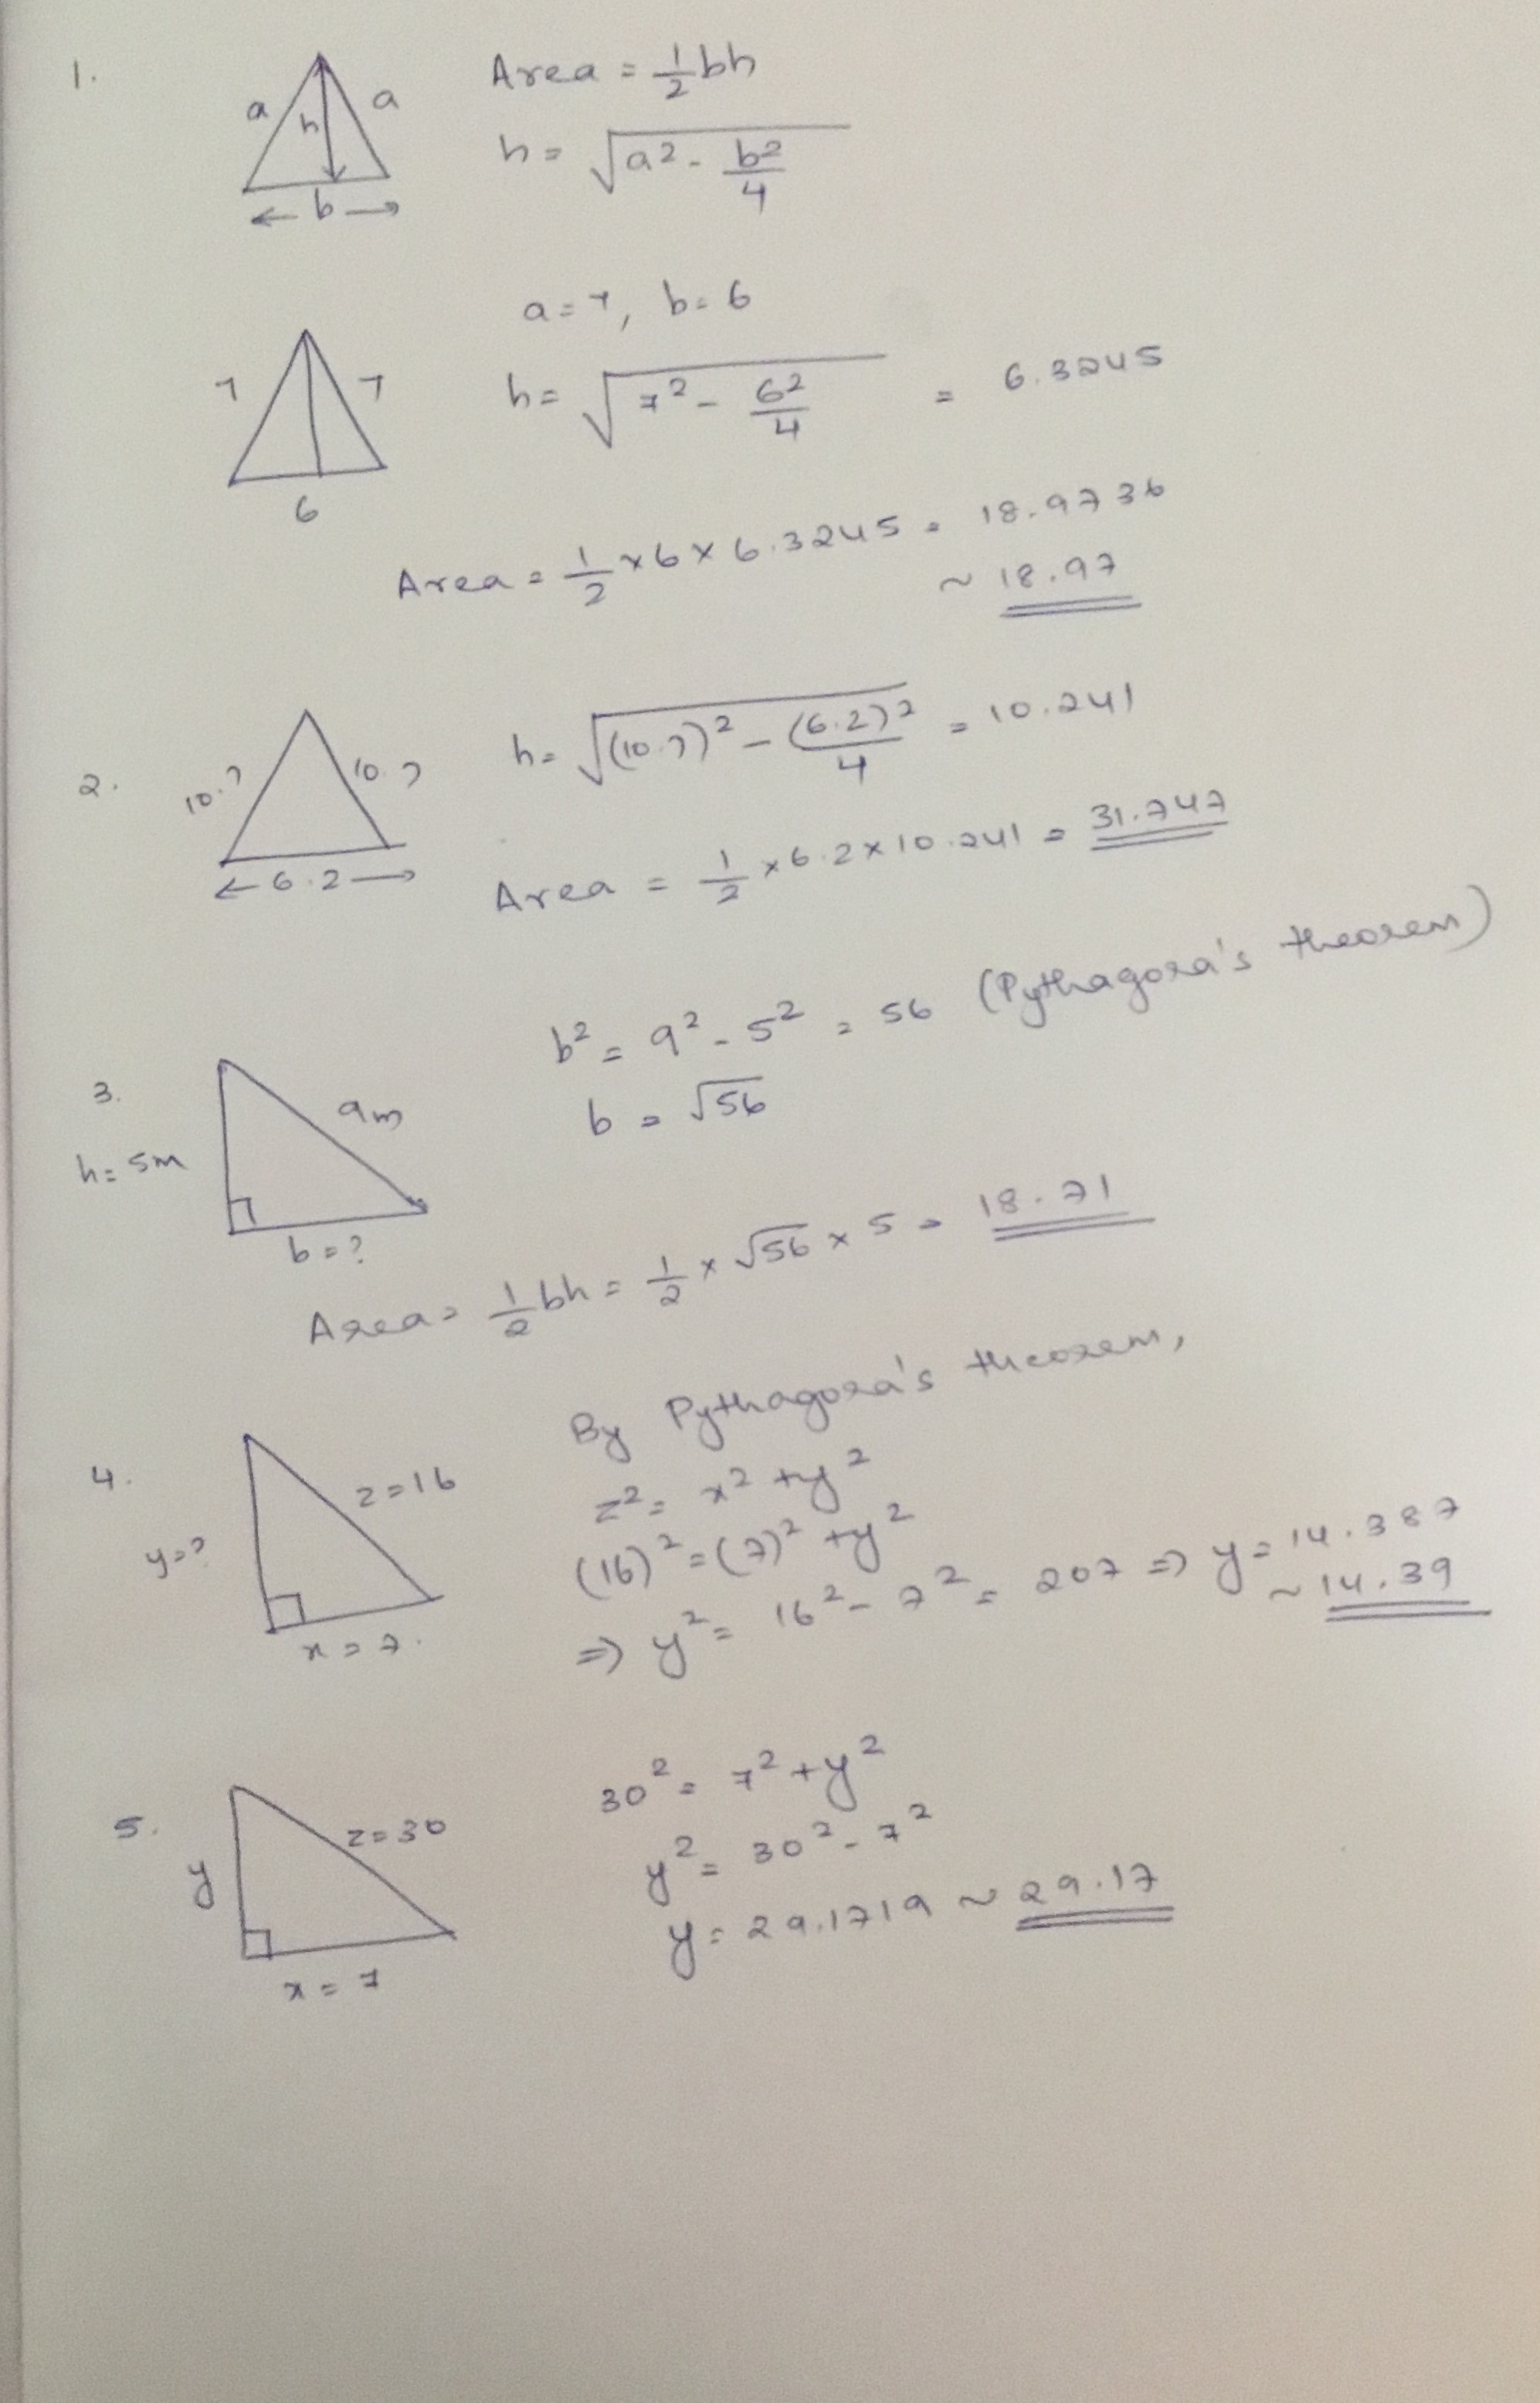 1.
a h a
← b →
Area = 1/2 bh
h = √(a² - b²/4)
a = 7, b = 6
7 7
6
h = √(7² - 6²/4) = 6.3245
Area = 1/2 × 6 × 6.3245 = 18.9736
~ 18.97
2.
10.7 10.7
← 6.2 →
h = √((10.7)² - (6.2)²/4) = 10.241
Area = 1/2 × 6.2 × 10.241 = 31.747
3.
h = 5m
9m
b = ?
b² = 9² - 5² = 56 (Pythagora's theorem)
b = √56
Area = 1/2 bh = 1/2 × √56 × 5 = 18.71
4.
y = ?
z = 16
x = 7.
By Pythagora's theorem,
z² = x² + y²
(16)² = (7)² + y²
⇒ y² = 16² - 7² = 207 ⇒ y = 14.387
~ 14.39
5.
y
z = 30
x = 7
30² = 7² + y²
y² = 30² - 7²
y = 29.1719 ~ 29.17